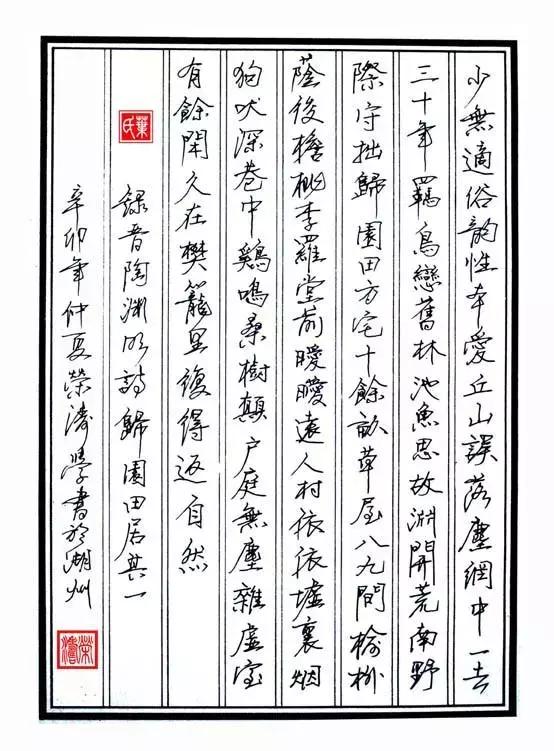 少無適俗韵性本愛丘山誤落塵網中一去
三十年羈鳥戀舊林池魚思故淵開荒南野
際守拙歸園田方宅十餘畝草屋八九間榆柳
蔭後檐桃李羅堂前曖曖遠人村依依墟裏烟
狗吠深巷中鷄鳴桑樹顛户庭無塵雜虛室
有餘閑久在樊籠里復得返自然
葉氏
錄晋陶渊明詩歸園田居其一
辛卯年仲夏榮濤學書於湖州
榮濤